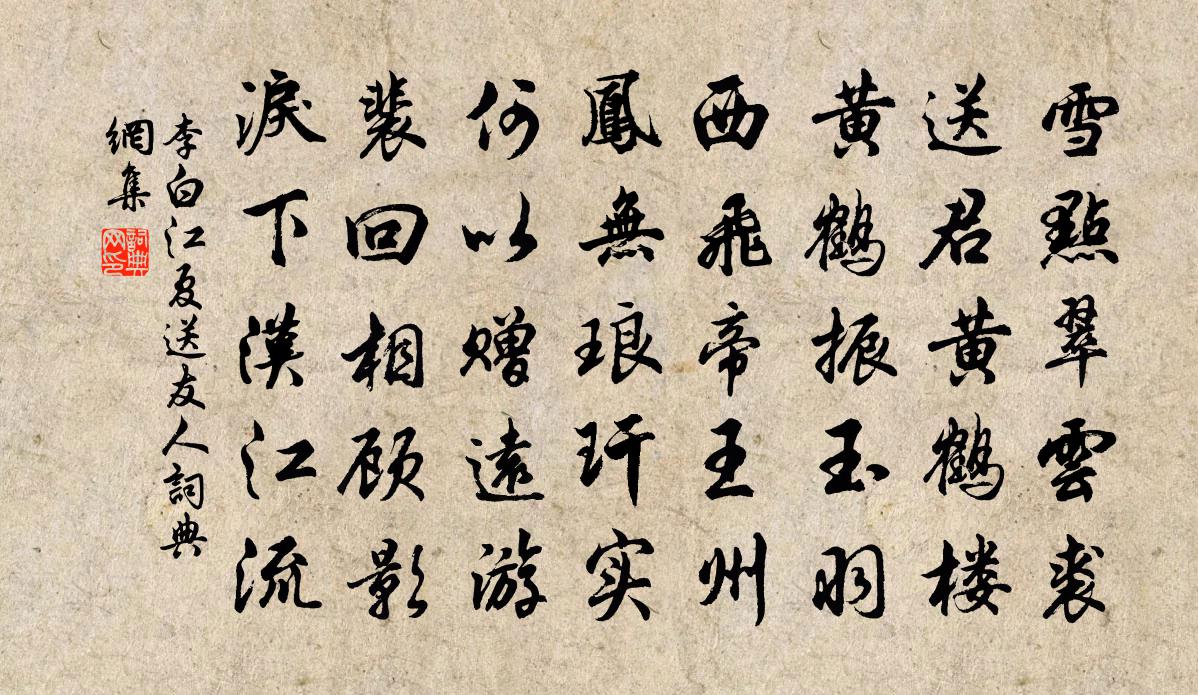 雪點翠雲裘
送君黄鶴楼
黄鶴振玉羽
西飛帝王州
鳳無琅玕实
何以赠遠游
裴回相顾影
淚下漢江流
李白江夏送友人詞典
網集
詞典
网印